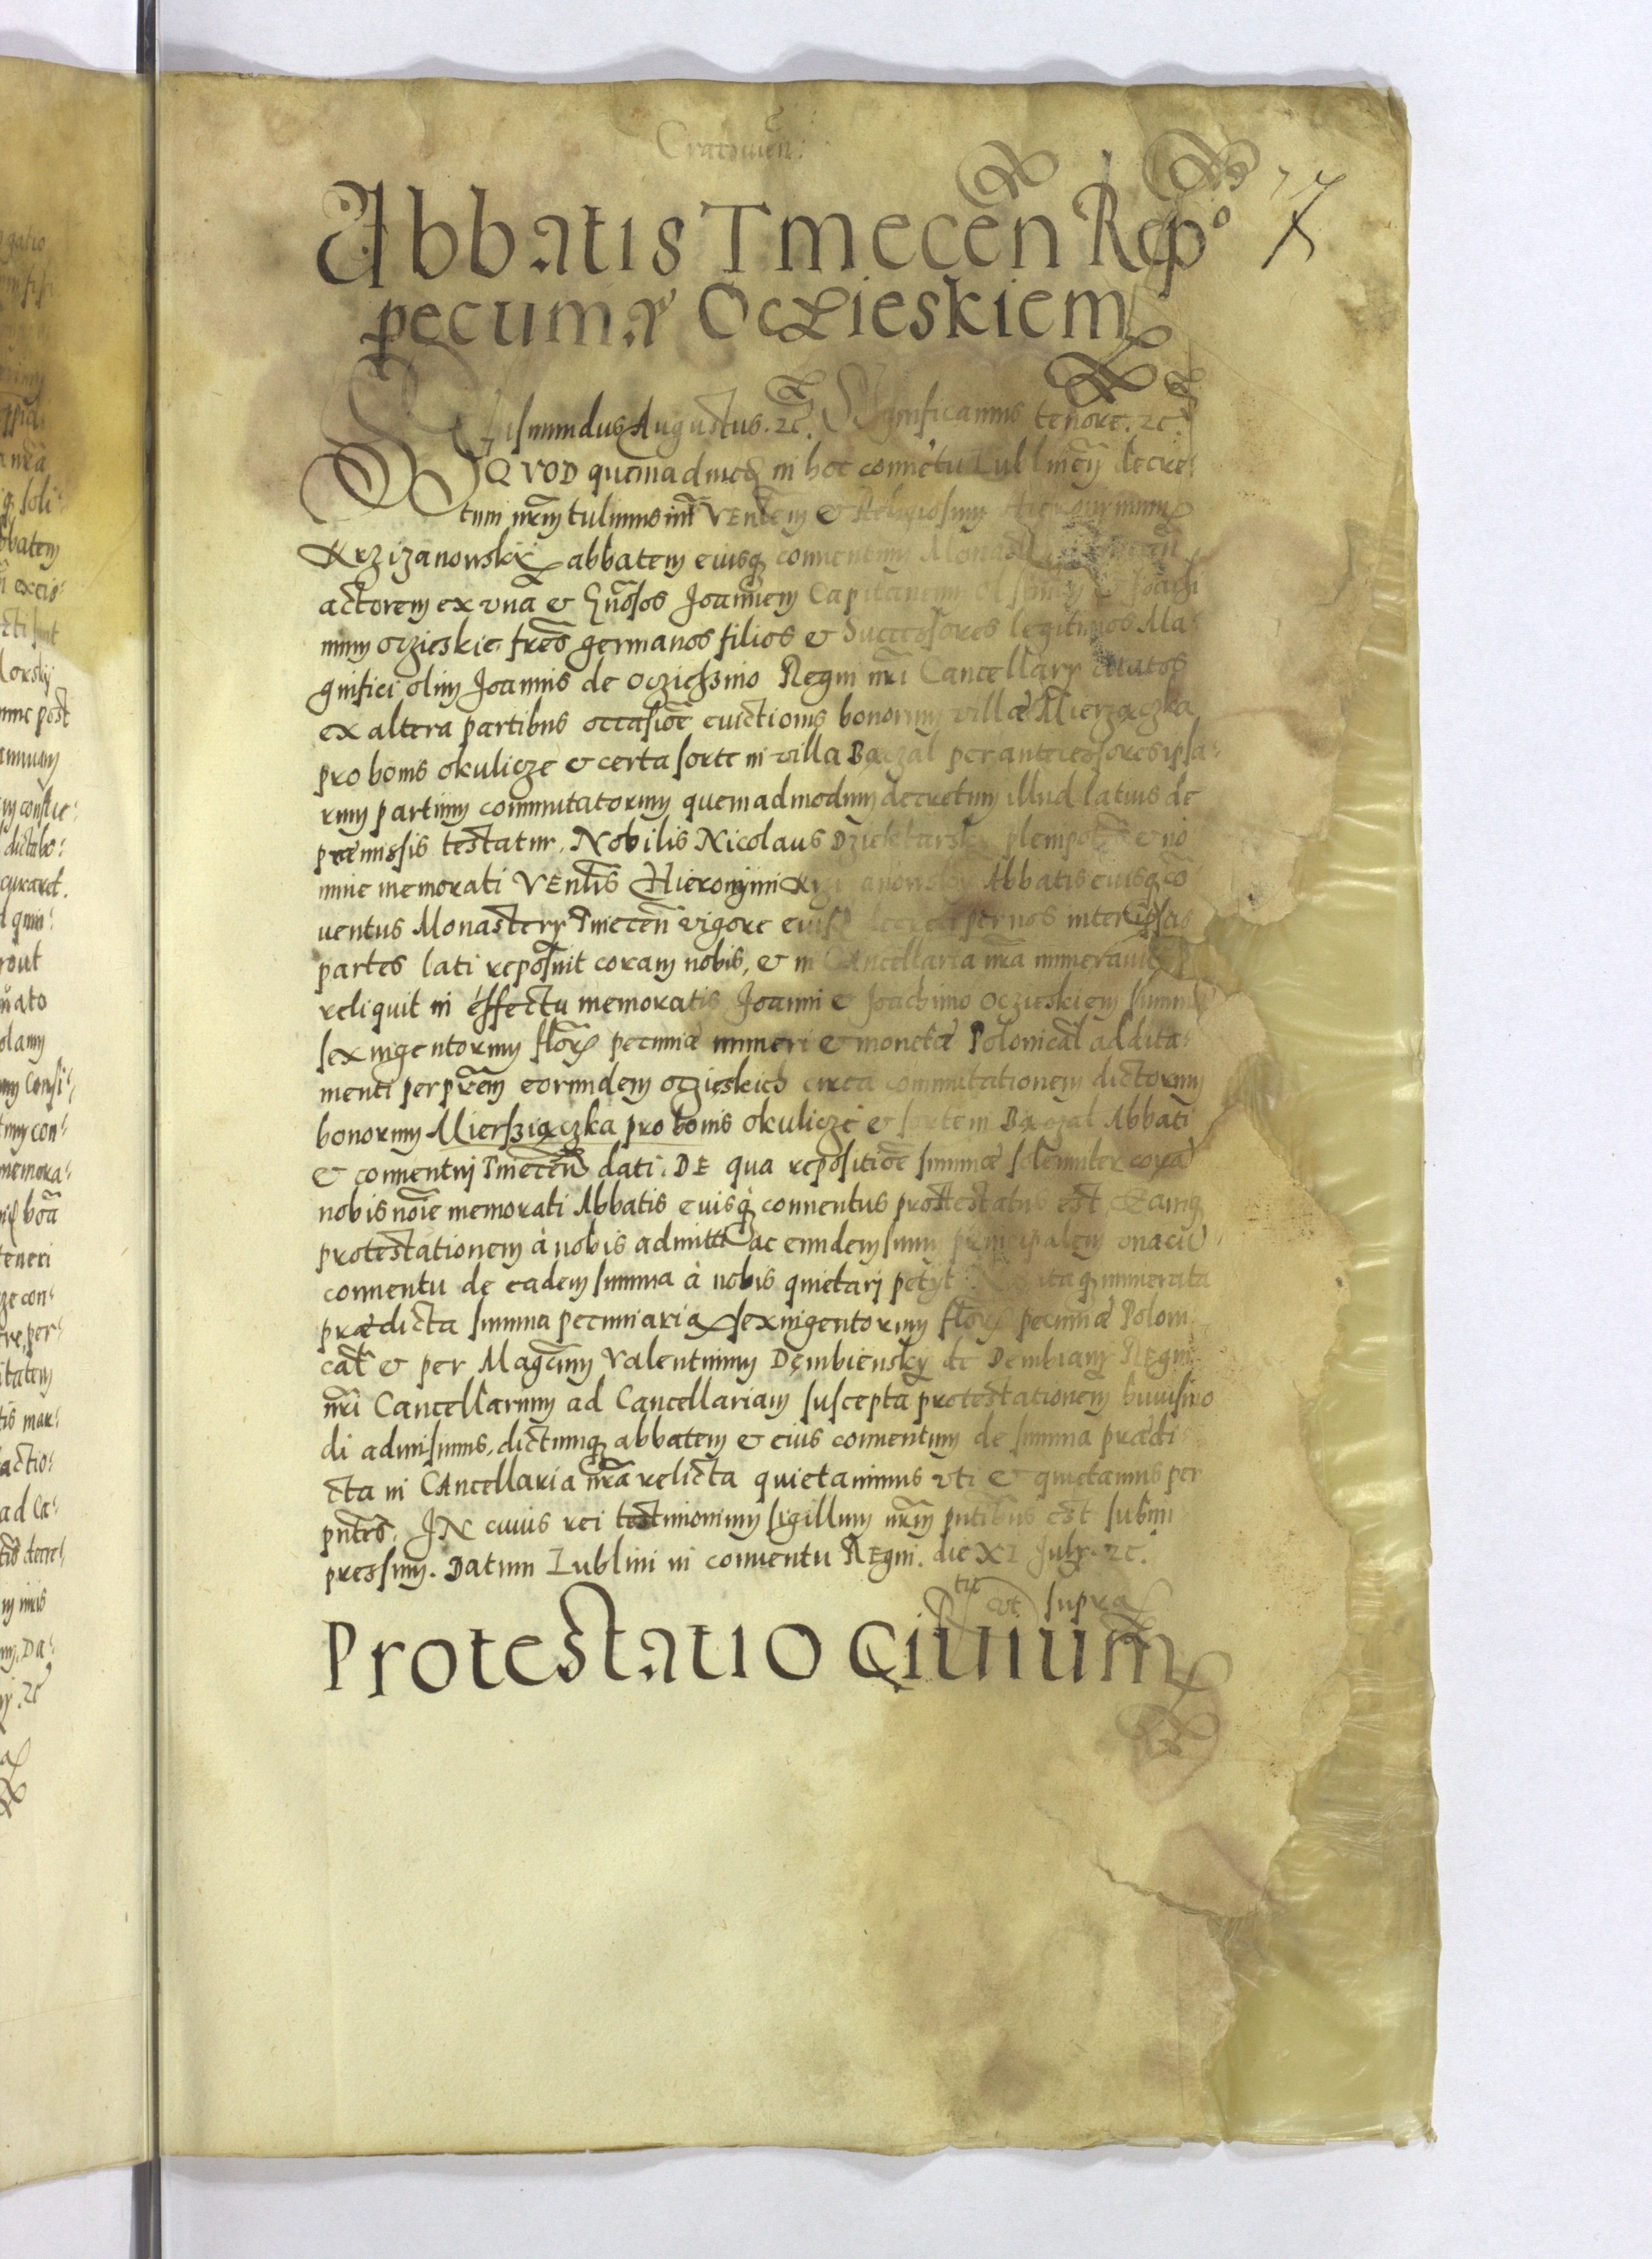 Cracouien:
Abbatis Tinecen̄ Rep°
pecuniar̄ Oczieskiem
Sigismundus Augustus. ꝛc̄. Significamus tenore. ꝛc̄.
QVOD quemadmod̄ in hoc conuētu Lublinen̄ decre:
tum nr̄m tulimus int̄ VEnłem & Religiosum Hieronymum
Krzizanowskij abbatem eiusq̨ conuentum Monast
actorem ex vna & Gn̄osos Joannem Capitaneum Ol & Joachi
mum oczieskie fres̄ germanos filios & Successores legitimos Ma:
gnifici olim Joannis de Ocziessino Regni nr̄i Cancellarÿ citatos
ex altera partibus occasioē euictionis bonorum villæ Mierzączka
pro bonis okulicze & certa sorte in villa Bączal per antecessores ipsa:
rum partium commutatorum quemadmodum decretum illud latius de
præmissis testatur. Nobilis Nicolaus plenipoten̄ & no
mine memorati VEnłis Hieronÿmi Krzizanowskÿ Abbatis eiusq̨ cō
uentus Monasterÿ Tinecen̄ vigore eius decreti per nos inter ipsas
partes lati reposuit coram nobis, & in CAncellaria nr̄a numerauit
reliquit in effectu memoratis Joanni & Joachimo Oczieskiem summā
sexingentorum flōr pecuniæ numeri & monetæ Polonical̄ addita:
menti per pr̄em eorundem oczieskich circa commutationem dictorum
bonorum Miersziączka pro bonis okulicze & sortem Bączal Abbati
& conuentuj Tinecen̄ dati. DE qua repositioē summæ solenniter corā
nobis noīe memorati Abbatis euisq̨ conuentus prostestatus est Eamq̨
protestationem à nobis admitti ac eundem suum principalem vnacū
conuentu de eadem summa à nobis quietarj petÿt. itaq̨ numerata
prædicta summa pecuniaria sexingentorum flōr pecuniæ Poloni
cal̄ & per Mag̅cum Valentinum Dembienskÿ de Dembianÿ REgni
nr̄i Cancellarium ad Cancellariam suscepta protestationem huiusmo
di admisimus, dictumq̨ abbatem & eius conuentum de summa prædi
cta in CAncellaria nr̄a relicta quietauimus vti & quietamus per
pn̄tes. JN cuius rei testimonium sigillum nr̄m pn̄tibus est subim
pressum. Datum Lublini in conuentu REgni. die XI Julÿ. ꝛc̄.
vt supra
Protestatio Ciuium